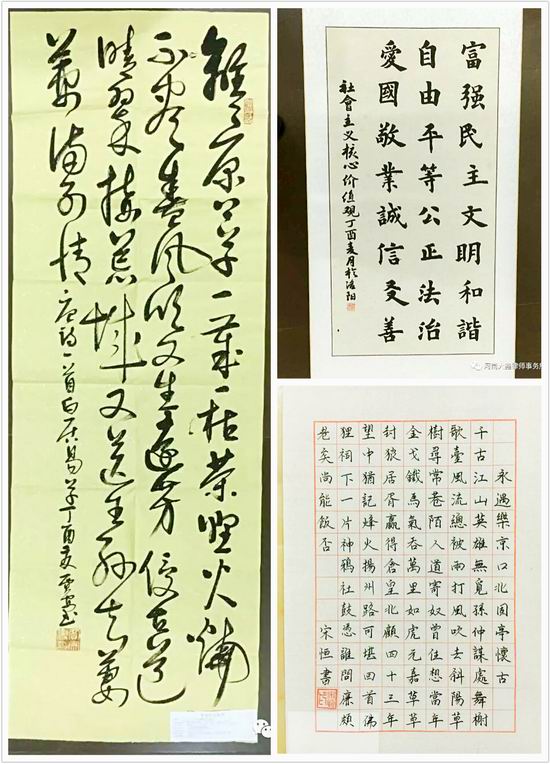 離離原上草一歲一枯榮野火燒
不盡春風吹又生遠芳侵古道
晴翠接荒城又送王孫去萋
萋滿別情
唐詩一首白居易草丁酉夏
富强民主文明和諧
自由平等公正法治
愛國敬業誠信友善
社會主义核心价值观丁酉夏月於洛阳
河南大律师事务所
永遇樂京口北固亭懷古
千古江山英雄無覓孫仲謀處舞榭
歌臺風流總被雨打風吹去斜陽草
樹尋常巷陌人道寄奴曾住想當年
金戈鐵馬氣吞萬里如虎元嘉草草
封狼居胥贏得倉皇北顧四十三年
望中猶記烽火揚州路可堪回首佛
狸祠下一片神鴉社鼓憑誰問廉頗
老矣尚能飯否 宋恒書